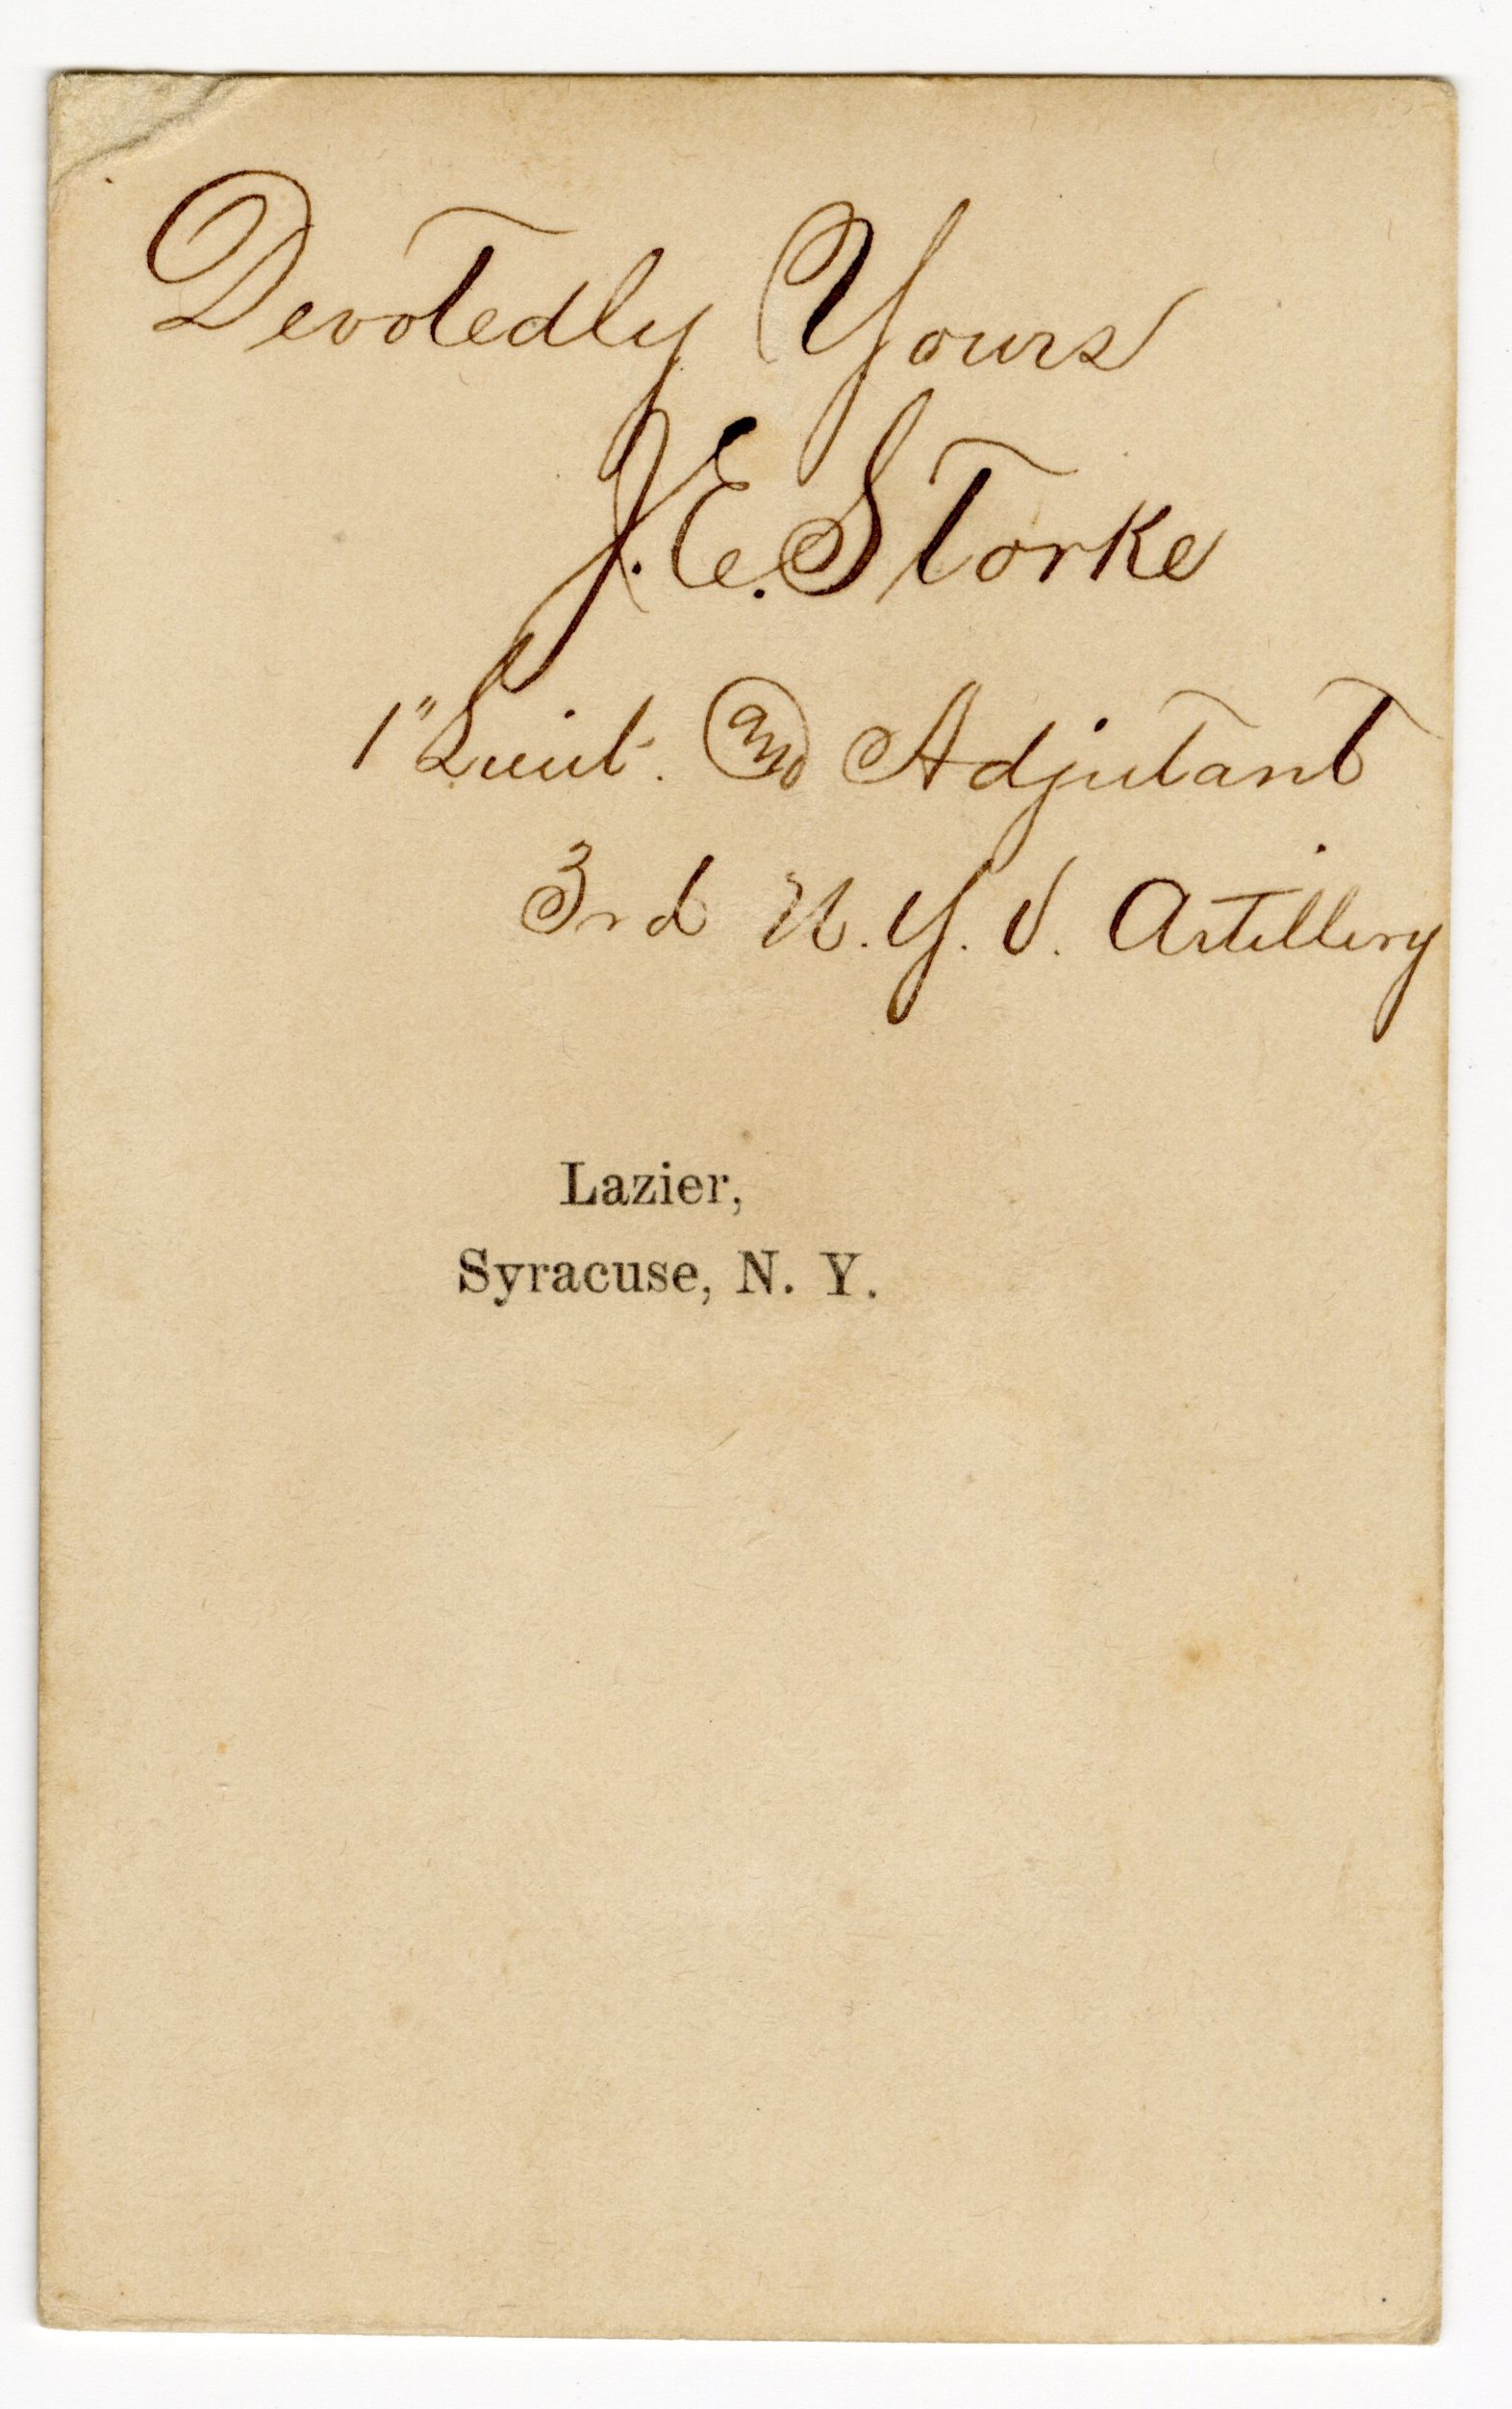 Devotedly Yours
J. E. Storke
1" Lieut. and Adjutant
3rd N. Y. V. Artillery
Lazier,
Syracuse, N. Y.